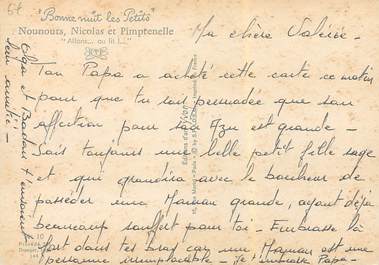 64
"Bonne nuit les Petits"
Nounours, Nicolas et Pimprenelle
"Allons... au lit !..."
Ma chère Valérie.
Ton Papa a acheté cette carte ce matin
pour que tu sois persuadée que son
affection pour son Azu est grande -
Sois toujours une belle petit fille sage
et qui grandira avec le bonheur de
posséder une Maman grande, ayant déjà
beaucoup souffert pour toi - Embrasse la
fort dans tes bras car une Maman est une
personne irremplaçable - Je t'embrasse Papa -
Olga et Bastien t'envoient
leur amitié -
Editions d'art YVON
10